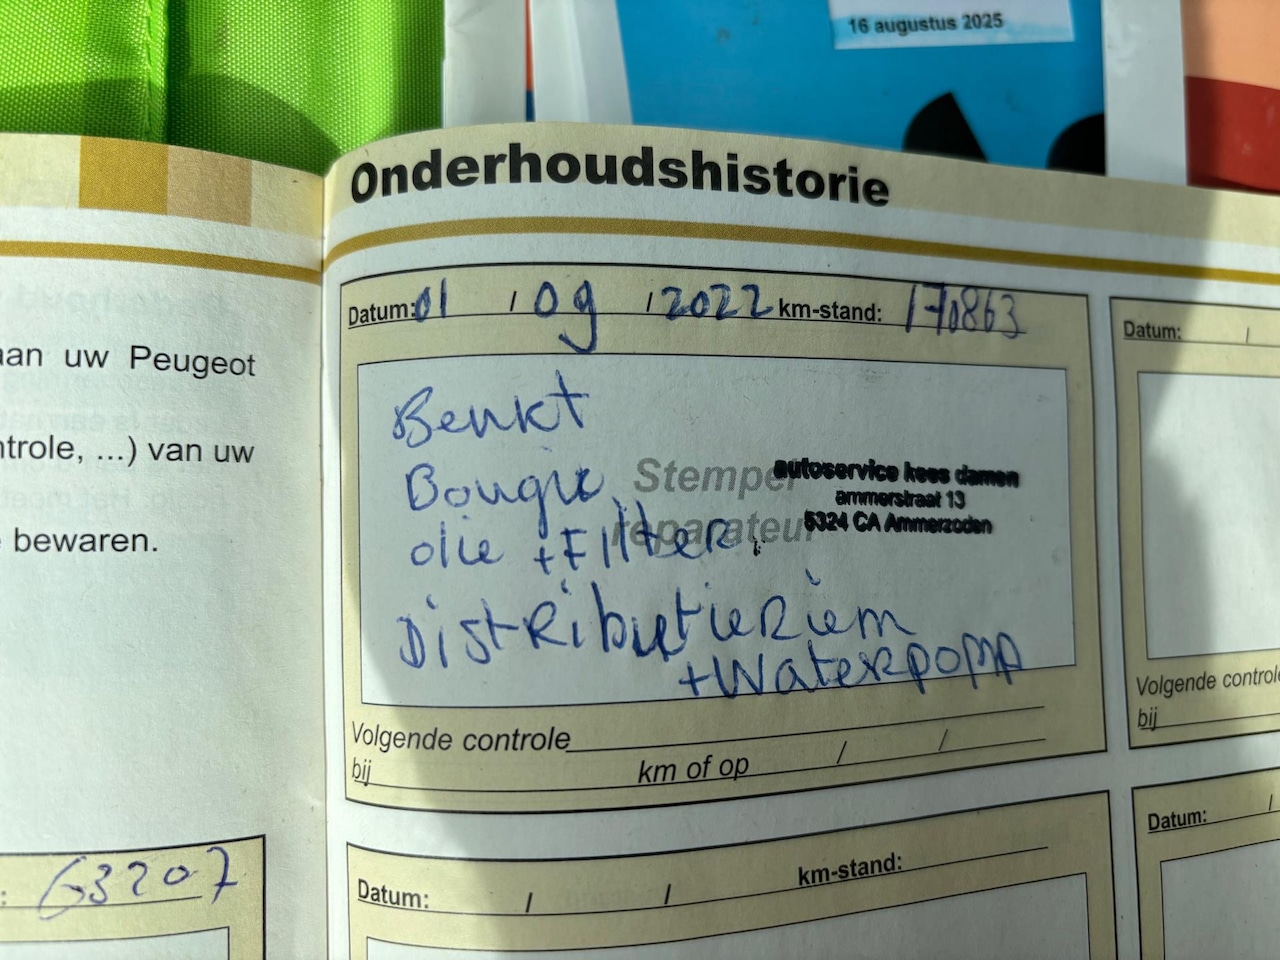 16 augustus 2025
Onderhoudshistorie
Datum: 01 / 09 / 2022 km-stand: 170863
Benkt
Bougie
olie + Filter
Distributieriem
+ Waterpomp
Stempel
reparateur
autoservice kees damen
ammerstraat 13
5324 CA Ammerzoden
Volgende controle
bij km of op / /
Datum: / / km-stand:
aan uw Peugeot
ntrole, ...) van uw
bewaren.
: 63207
Datum: /
Volgende controle
bij
Datum: /